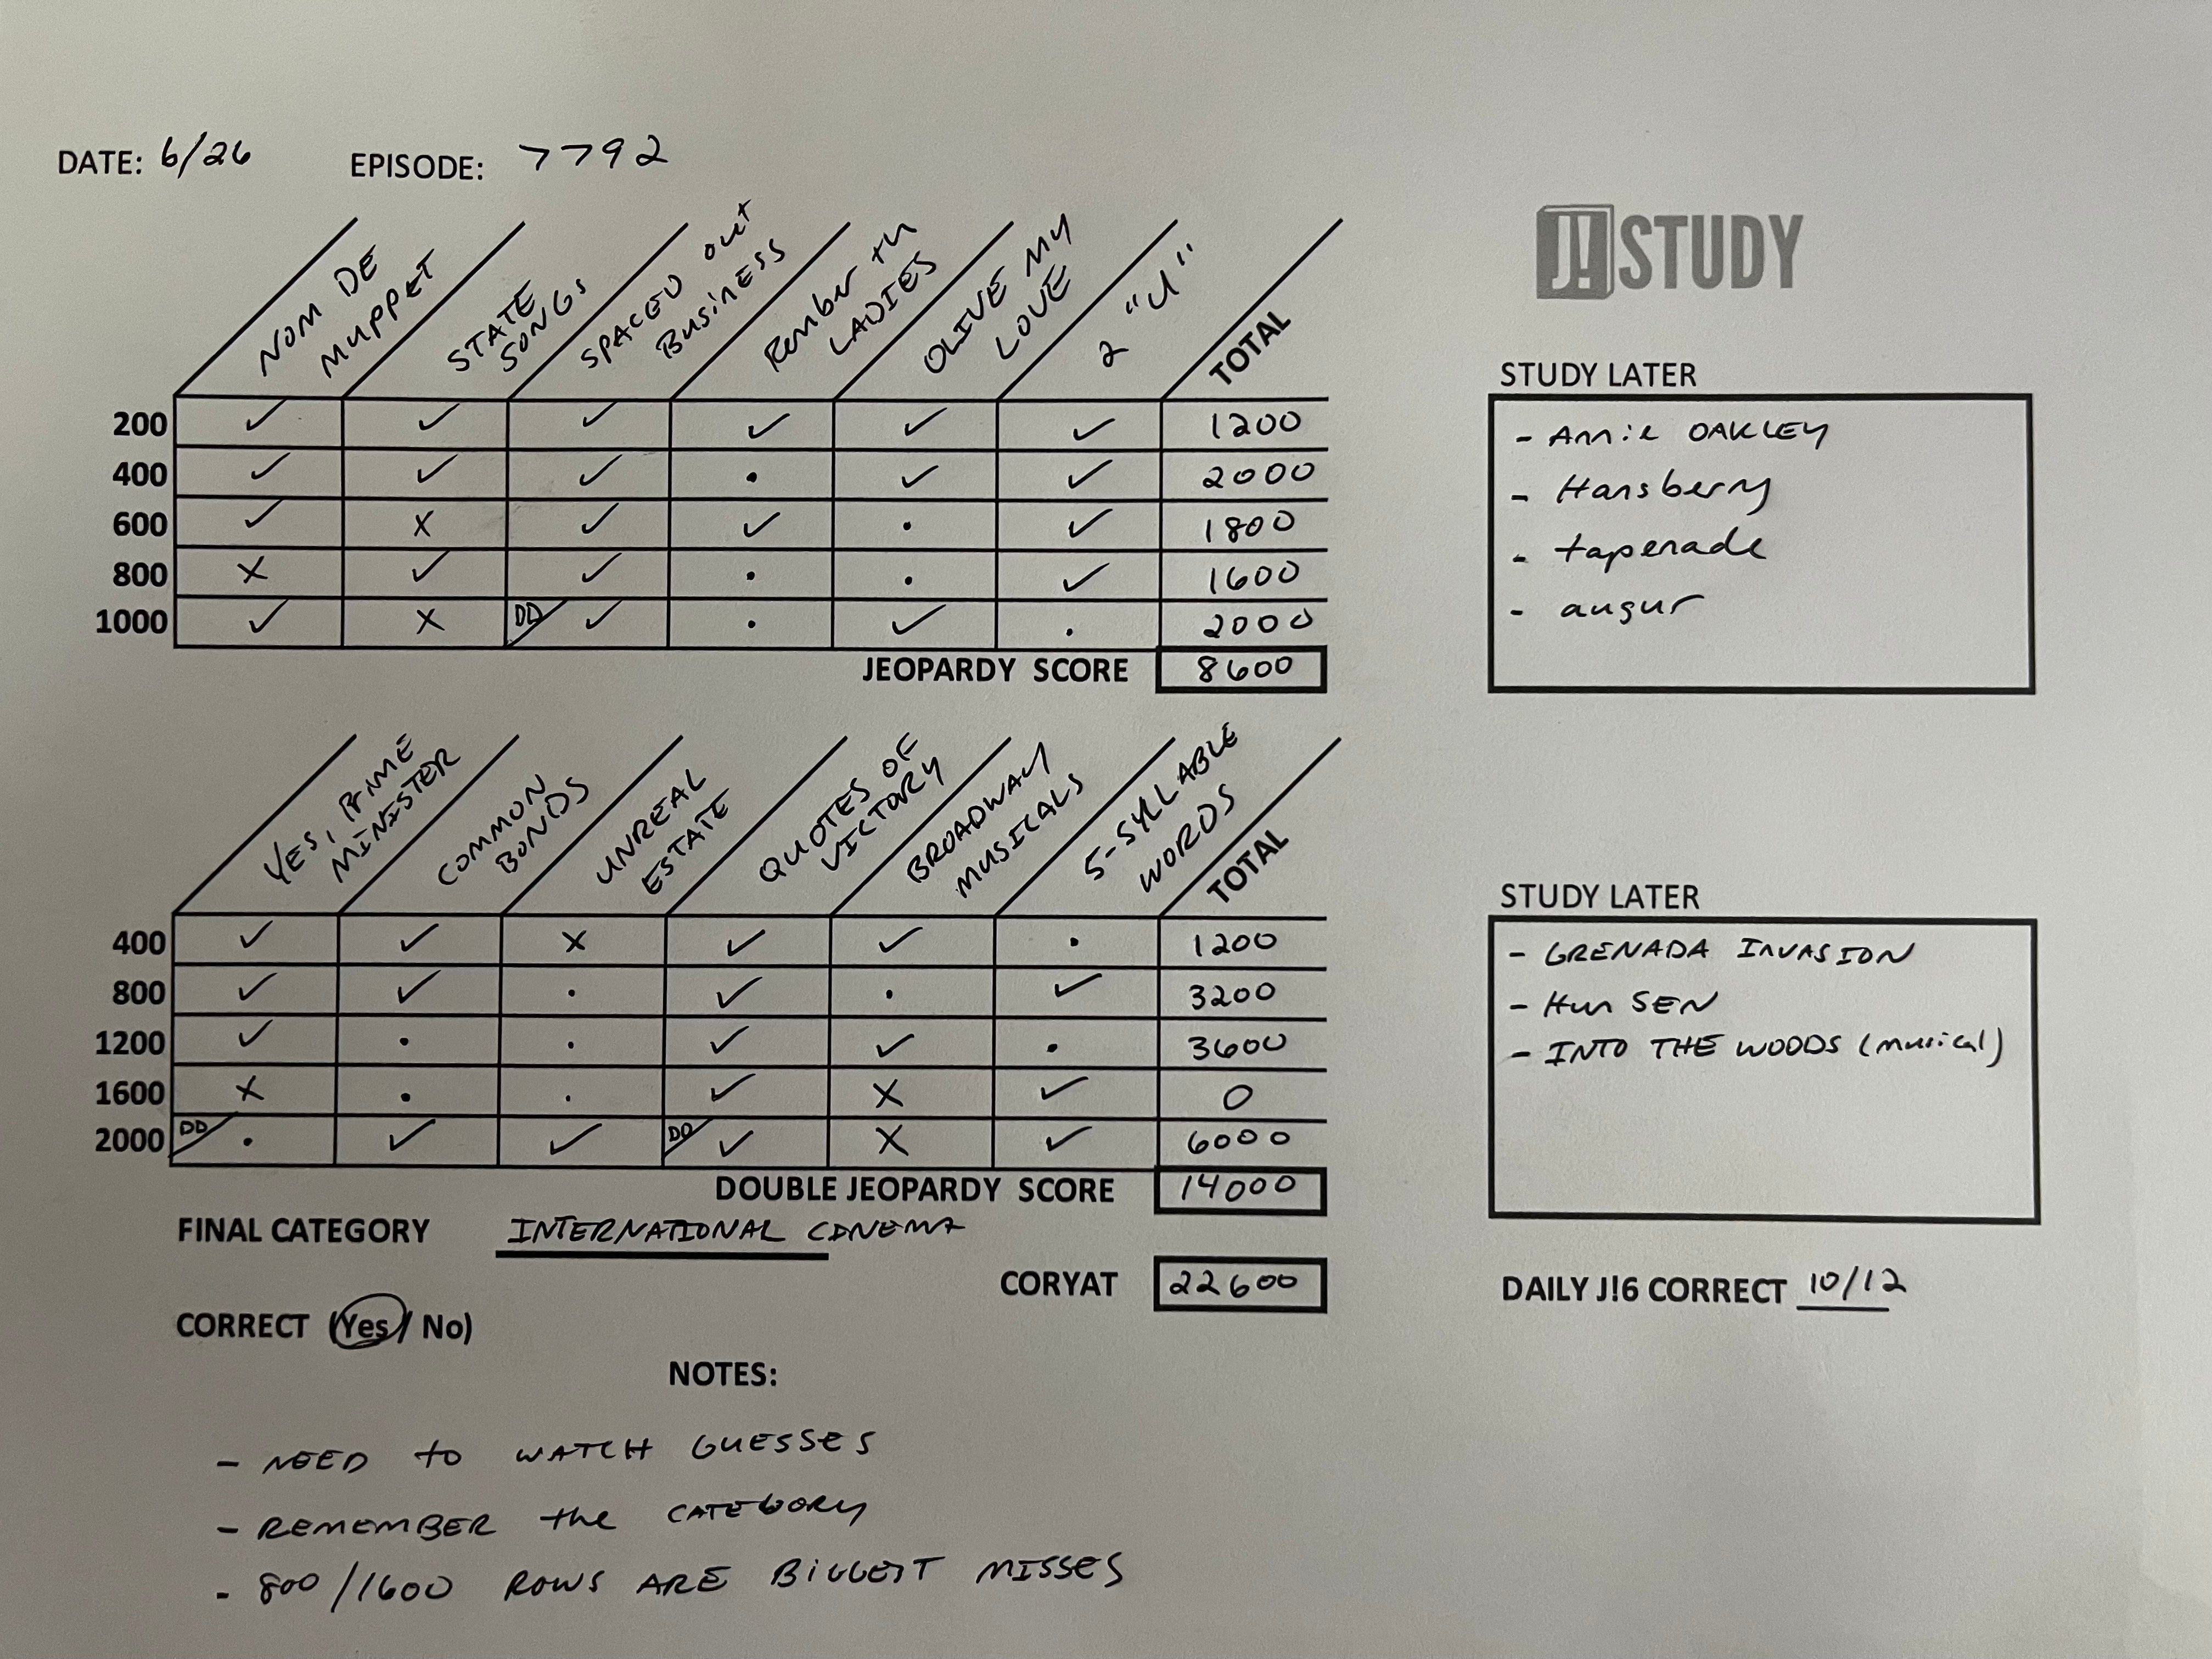 DATE: 6/26 EPISODE: 7792
J! STUDY
NOM DE MUPPET
STATE SONGS
SPACED out BUSINESS
Rember th LADIES
OLIVE MY LOVE
2 "U"
TOTAL
200 ✓ ✓ ✓ ✓ ✓ ✓ 1200
400 ✓ ✓ ✓ • ✓ ✓ 2000
600 ✓ X ✓ ✓ • ✓ 1800
800 X ✓ ✓ • • ✓ 1600
1000 ✓ X DD ✓ • ✓ • 2000
JEOPARDY SCORE 8600
STUDY LATER
- Annie OAKLEY
- Hansberry
- tapenade
- augur
YES, PRIME MINISTER
COMMON BONDS
UNREAL ESTATE
QUOTES OF VICTORY
BROADWAY MUSICALS
5-SYLLABLE WORDS
TOTAL
400 ✓ ✓ X ✓ ✓ • 1200
800 ✓ ✓ • ✓ • ✓ 3200
1200 ✓ • • ✓ ✓ • 3600
1600 X • • ✓ X ✓ 0
2000 DD • ✓ ✓ DD ✓ X ✓ 6000
DOUBLE JEOPARDY SCORE 14000
STUDY LATER
- GRENADA INVASION
- Hun SEN
- INTO THE WOODS (musical)
FINAL CATEGORY INTERNATIONAL CINEMA
CORYAT 22600
DAILY J!6 CORRECT 10/12
CORRECT (Yes / No)
NOTES:
- NEED to WATCH GUESSES
- REMEMBER the CATEGORY
- 800/1600 ROWS ARE BIGGEST MISSES